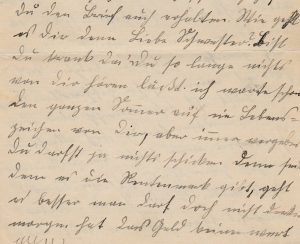 du den Brief auch erhalten. Wie geht
es dir denn Liebe Schwester. Bist
du krank das du so lange nichts
von dir hören läßt. ich warte schon
den ganzen Sommer auf ein Lebens-
zeichen von Dir, aber immer vergebens
du darfst ja nichts schicken denn seit
dem es die Rentenmark gibt, geht
es besser man darf doch nicht denken
morgen hat das Geld keinen wert